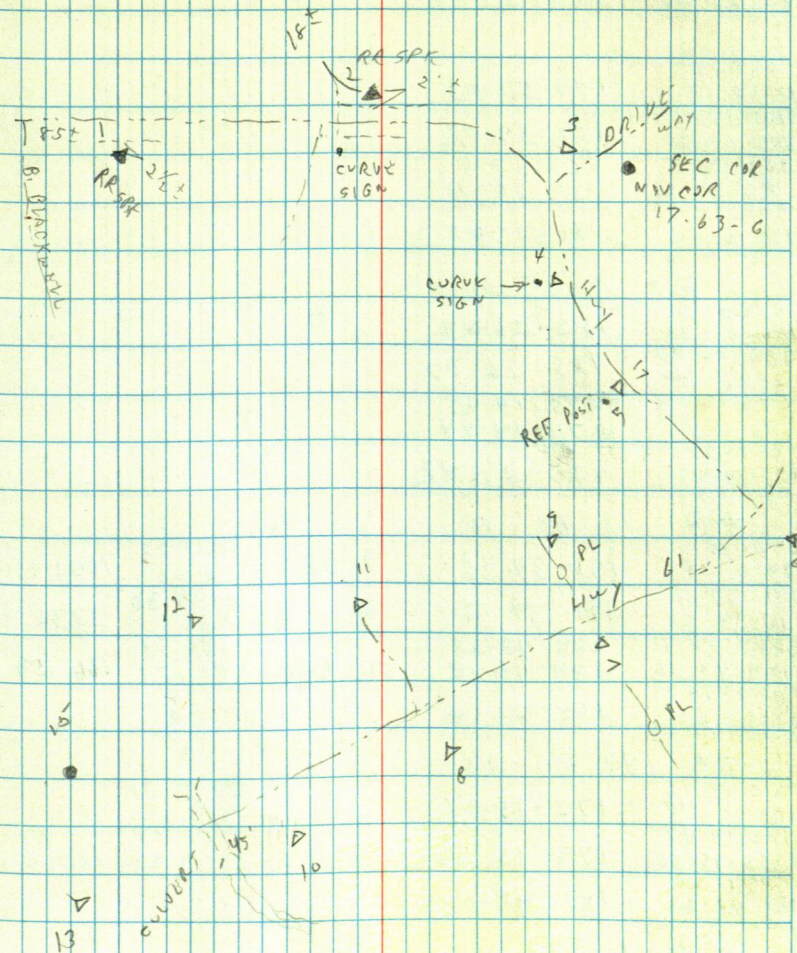 18±
RR SPK
2
2'±
85±
1
RR SPK
2½±
B. BLACKWELL
CURVE
SIGN
3
DRIVE
WAY
SEC COR
NW COR
17-63-6
4
CURVE
SIGN
HWY
17
REF. POST
5
9
PL
HWY
61
7
PL
11
12
8
10'
CULVERT
45'
10
13